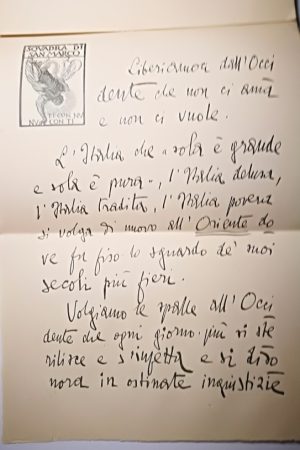 SQVADRA DI
SAN MARCO
TI CON NV
NV CON TI
Liberiamoci dall'Occi
dente che non ci ama
e non ci vuole.
L'Italia che sola è grande
e sola è pura, l'Italia delusa,
l'Italia tradita, l'Italia povera
si volga di nuovo all'Oriente do
ve fu fiso lo sguardo de' suoi
secoli più fieri.
Volgiamo le spalle all'Occi
dente che ogni giorno più si ste
rilisce e s'infetta e si diso
nora in ostinate ingiustizie